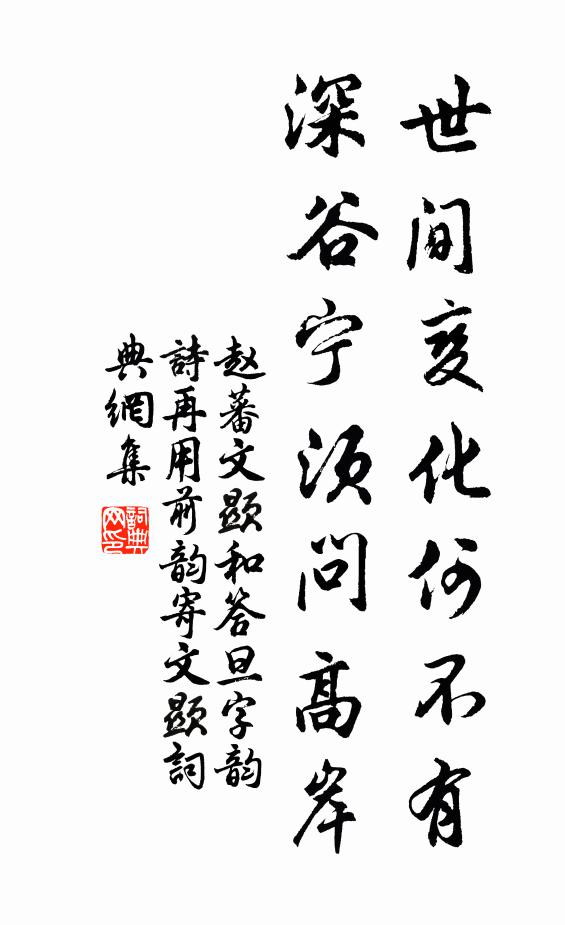 世间变化何不有
深谷宁须问高岸
赵蕃文显和答旦字韵
詩再用前韵寄文显詞
典網集
詞典网印